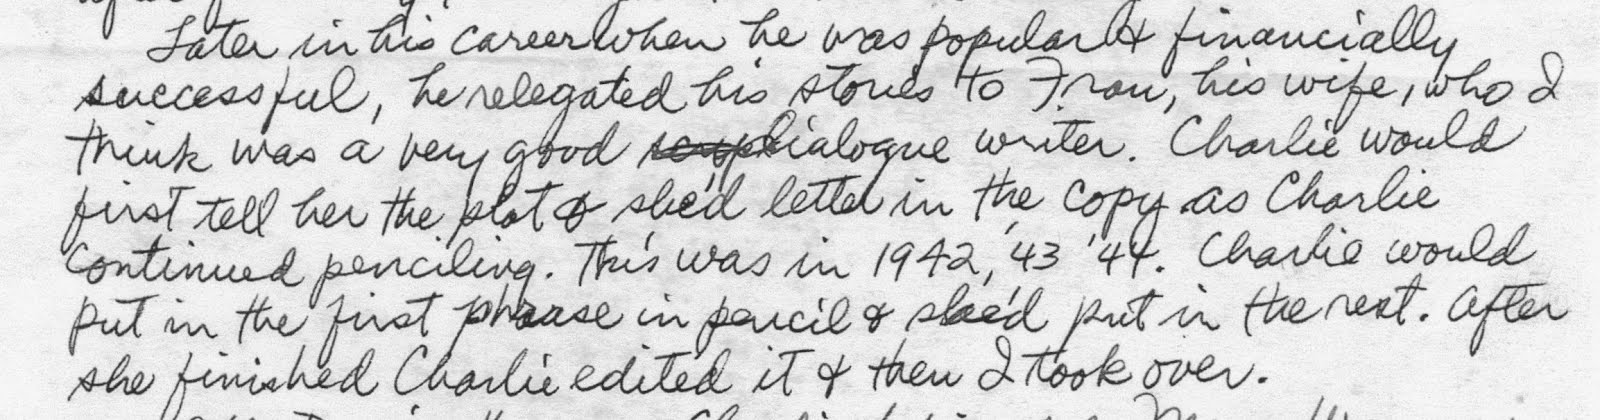 Later in his career when he was popular & financially
successful, he relegated his stories to Fran, his wife, who I
think was a very good dialogue writer. Charlie would
first tell her the plot & she'd letter in the copy as Charlie
continued penciling. This was in 1942, '43 '44. Charlie would
put in the first phrase in pencil & she'd put in the rest. After
she finished Charlie edited it & then I took over.